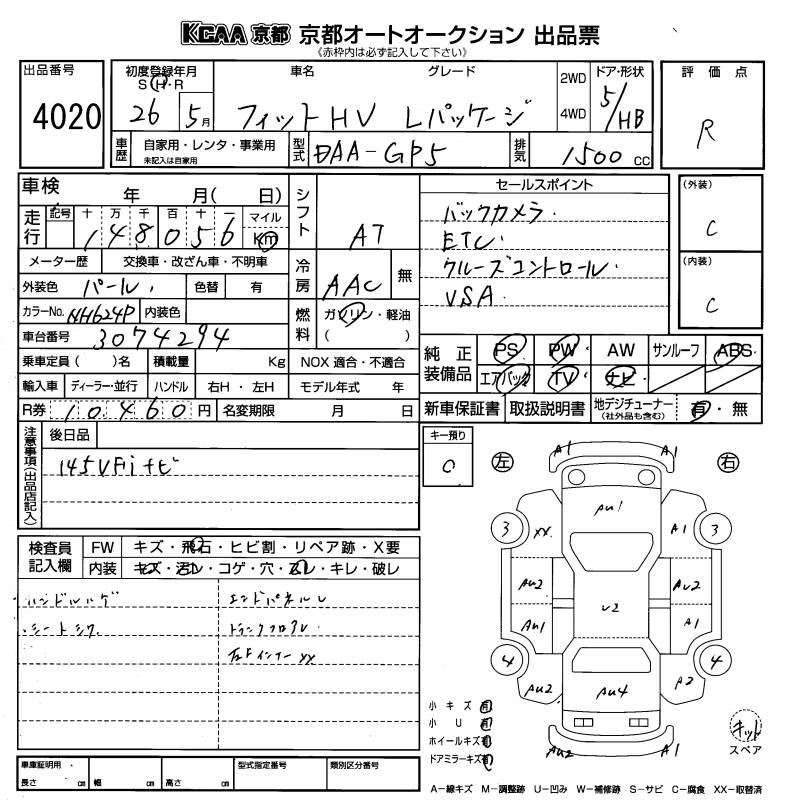 KCAA 京都 京都オートオークション 出品票
《赤枠内は必ず記入して下さい》
出品番号
4020
初度登録年月
S・H・R
26 5月
車名 グレード
フィットHV Lパッケージ
2WD
4WD
ドア・形状
5/HB
評価点
R
車歴
自家用・レンタ・事業用
未記入は自家用
型式
DAA-GP5
排気
1500 cc
車検 年 月( 日)
走行
記号 十 万 千 百 十 一
148056
マイル
Km
シフト
AT
メーター歴 交換車・改ざん車・不明車
外装色 パール 色替 有
冷房
AAC 無
カラーNo. NH624P 内装色
燃料
ガソリン・軽油
( )
車台番号 3074294
乗車定員( )名 積載量 Kg NOX 適合・不適合
輸入車 ディーラー・並行 ハンドル 右H・左H モデル年式 年
R券 10,460 円 名変期限 月 日
セールスポイント
バックカメラ.
ETC.
クルーズコントロール.
VSA.
(外装)
C
(内装)
C
純正装備品
PS PW AW サンルーフ ABS
エアバック TV ナビ
新車保証書 取扱説明書 地デジチューナー(社外品も含む) 有・無
注意事項(出品店記入)
後日品
145VFiナビ
キー預り
0
左 右
A1 A1
AU1
3 XX A1 3
AU2 AU2
U2
AU1 A1
4 4
AU2 AU4 A2
AU2 A1
検査員記入欄
FW キズ・飛石・ヒビ割・リペア跡・X要
内装 キズ・汚レ・コゲ・穴・スレ・キレ・破レ
ハンドルハゲ エンドパネルU
シートシワ トランクフロアU
右Fインナーxx
小キズ 有
小U 有
ホイールキズ 有
ドアミラーキズ 有
キット
スペア
車庫証明用
長さ cm 幅 cm 高さ cm
型式指定番号 類別区分番号
A－線キズ M－調整跡 U－凹み W－補修跡 S－サビ C－腐食 XX－取替済